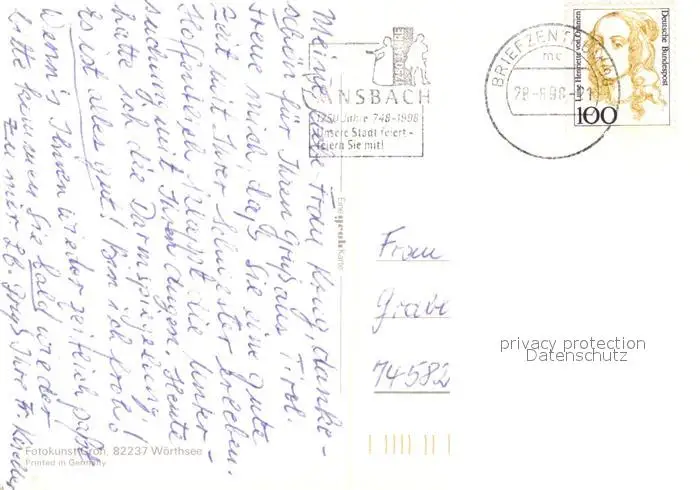 Meine liebe Frau Krug, danke-
schön für Ihren Gruß aus Tirol.
Freue mich, daß Sie eine gute
Zeit mit Ihrer Schwester erleben.
Hoffentlich klappt die Unter-
suchung mit Ihren Augen. Heute
hatte ich die Darmspiegelung!
Es ist alles gut! Bin ich froh!
Wenn's Ihnen wieder zeitlich paßt
bitte kommen Sie bald wieder
zu mir. Lb. Gruß Ihre Fr.
ANSBACH
1250 Jahre 748-1998
unsere Stadt feiert -
feiern Sie mit!
BRIEFZENTRUM
28-8.98
Luise Henriette von Oranien
Deutsche Bundespost
100
Eine groh Karte
Frau
Grabe
74582
privacy protection
Datenschutz
Fotokunst Groh, 82237 Wörthsee
Printed in Germany